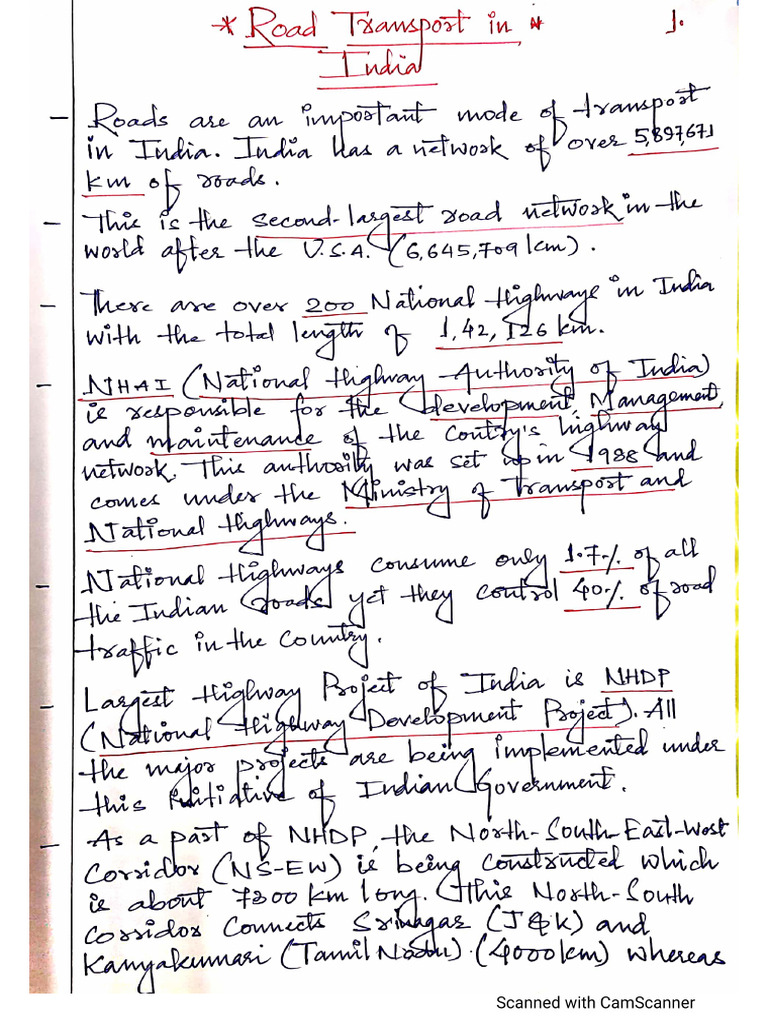 * Road Transport in * 1.
India
- Roads are an important mode of transport
in India. India has a network of over 5,897,671
km of roads.
- This is the second-largest road network in the
world after the U.S.A. (6,645,709 km).
- There are over 200 National Highways in India
with the total length of 1,42,126 km.
- NHAI (National Highway Authority of India)
is responsible for the development, Management,
and maintenance of the Contry's highway
network. This authority was set up in 1988 and
comes under the Ministry of Transport and
National Highways.
- National Highways consume only 1.7% of all
the Indian roads yet they control 40% of road
traffic in the Country.
- Largest Highway Project of India is NHDP
(National Highway Development Project). All
the major projects are being implemented under
this initiative of Indian Government.
- As a part of NHDP, the North-South-East-West
Corridor (NS-EW) is being Constructed which
is about 7300 km long. This North-South
Corridor Connects Srinagar (J&K) and
Kanyakumari (Tamil Nadu). (4000km) whereas
Scanned with CamScanner